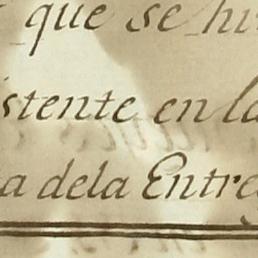 que se hi
istente en la
a dela Entre